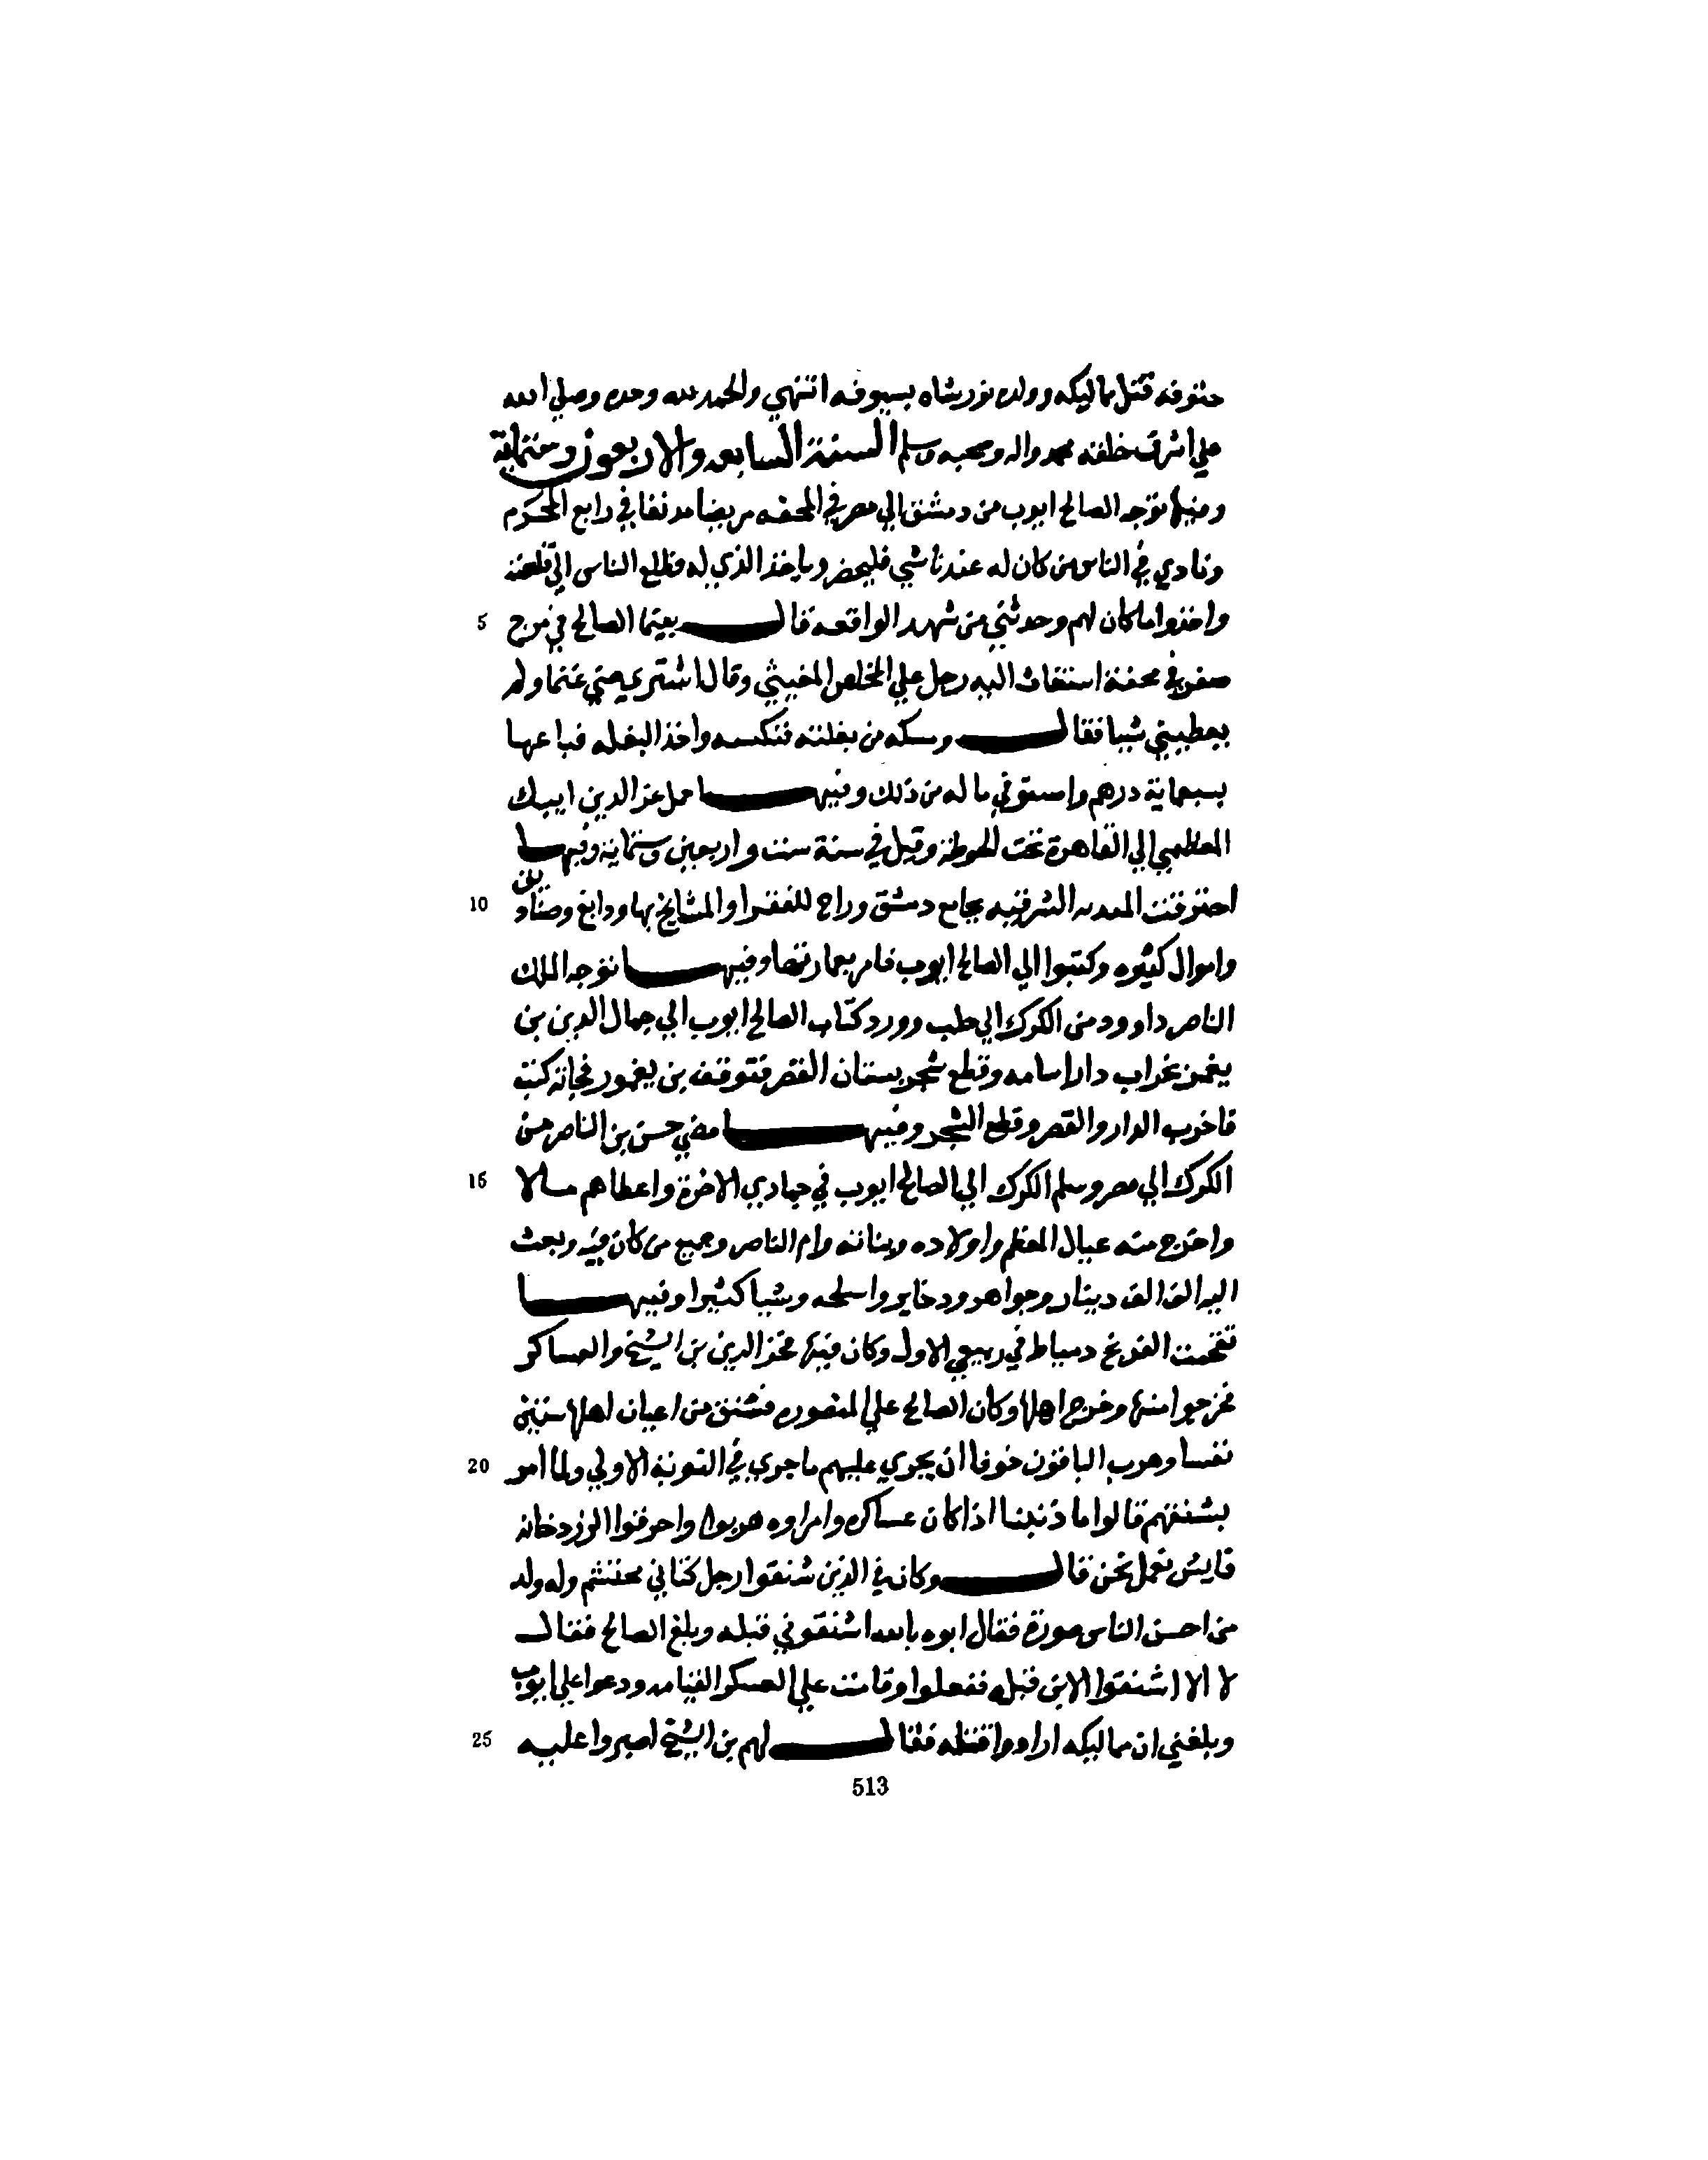 حتوفه قتل مماليكه وولده تورشاه بسيوفه انتهي والحمد لله وحده وصلي الله
علي اشرف خلقه محمد واله وصحبه وسلم السنة السابعه والاربعون وستمائة
وفيها توجه الصالح ايوب من دمشق الي مصر في المحفه مريضا مدنفا في رابع المحرم
ونادي في الناس من كان له عندنا شي فليحضر وياخذ الذي له فطلع الناس الي قلعته
5 واخذوا ما كان لهم وحدثني من شهد الواقعه قال بينما الصالح في مرج
صفر في محفته استغاث اليه رجل علي المخلص وقال اشتري مني غنما ولم
يعطيني شيا فقال وسكه من بغلته فنكسه واخذ البغله فباعها
بسبعماية درهم واستوفي ما له من ذلك وفيها حمل عز الدين ايبك
المعظمي الي القاهرة تحت الحوطه وقيل في سنة ست واربعين وستماية وفيها
10 احترقت الشرقيه بجامع دمشق وراح للفقرا والمشايخ بها ودايع وصناديق
واموال كثيره وكتبوا الي الصالح ايوب فامر بعمارتها وفيها توجه الملك
الناصر داوود من الكرك الي حلب وورد كتاب الصالح ايوب الي جمال الدين بن
يغمر بخراب دار اسامه وقطع شجر بستان القصر فتوقف بن يغمور فجاته كتب
فاخرب الدار والقصر وقطع الشجر وفيها مضي حسن بن الناصر من
15 الكرك الي مصر وسلم الكرك الي الصالح ايوب في جمادي الاخرة واعطاهم مالا
واخرج منه عيال المعظم واولاده وبناته وام الناصر وجميع من كان فيه وبعث
اليه الف الف دينار وجواهر وذخاير واسلحه وشيا كثيرا وفيها
تقحمت الفرنج دمياط في ربيع الاول وكان فيها فخر الدين بن الشيخ والعساكر
فخرجوا منها وخرج اهلها وكان الصالح علي المنصوره فشنق من اعيان اهلها ستين
20 نفسا وهرب الباقون خوفا ان يجري عليهم ما جري في النوبة الاولي ولما امر
بشنقهم قالوا ما ذنبنا اذا كان عساكره وامراوه هربوا واحرقوا الزردخانه
فايش نعمل نحن فقال وكان في الذين شنقوا رجل كناني محتشم وله ولد
من احسن الناس صورة فقال ابوه بالله اشنقوني قبله وبلغ الصالح فقال
لا الا اشنقوا الابن قبله ففعلوا وقامت علي العسكر القيامه ودعوا علي ايوب
25 وبلغني ان مماليكه ارادوا قتله فقال لهم بن الشيخ اصبروا عليه
513